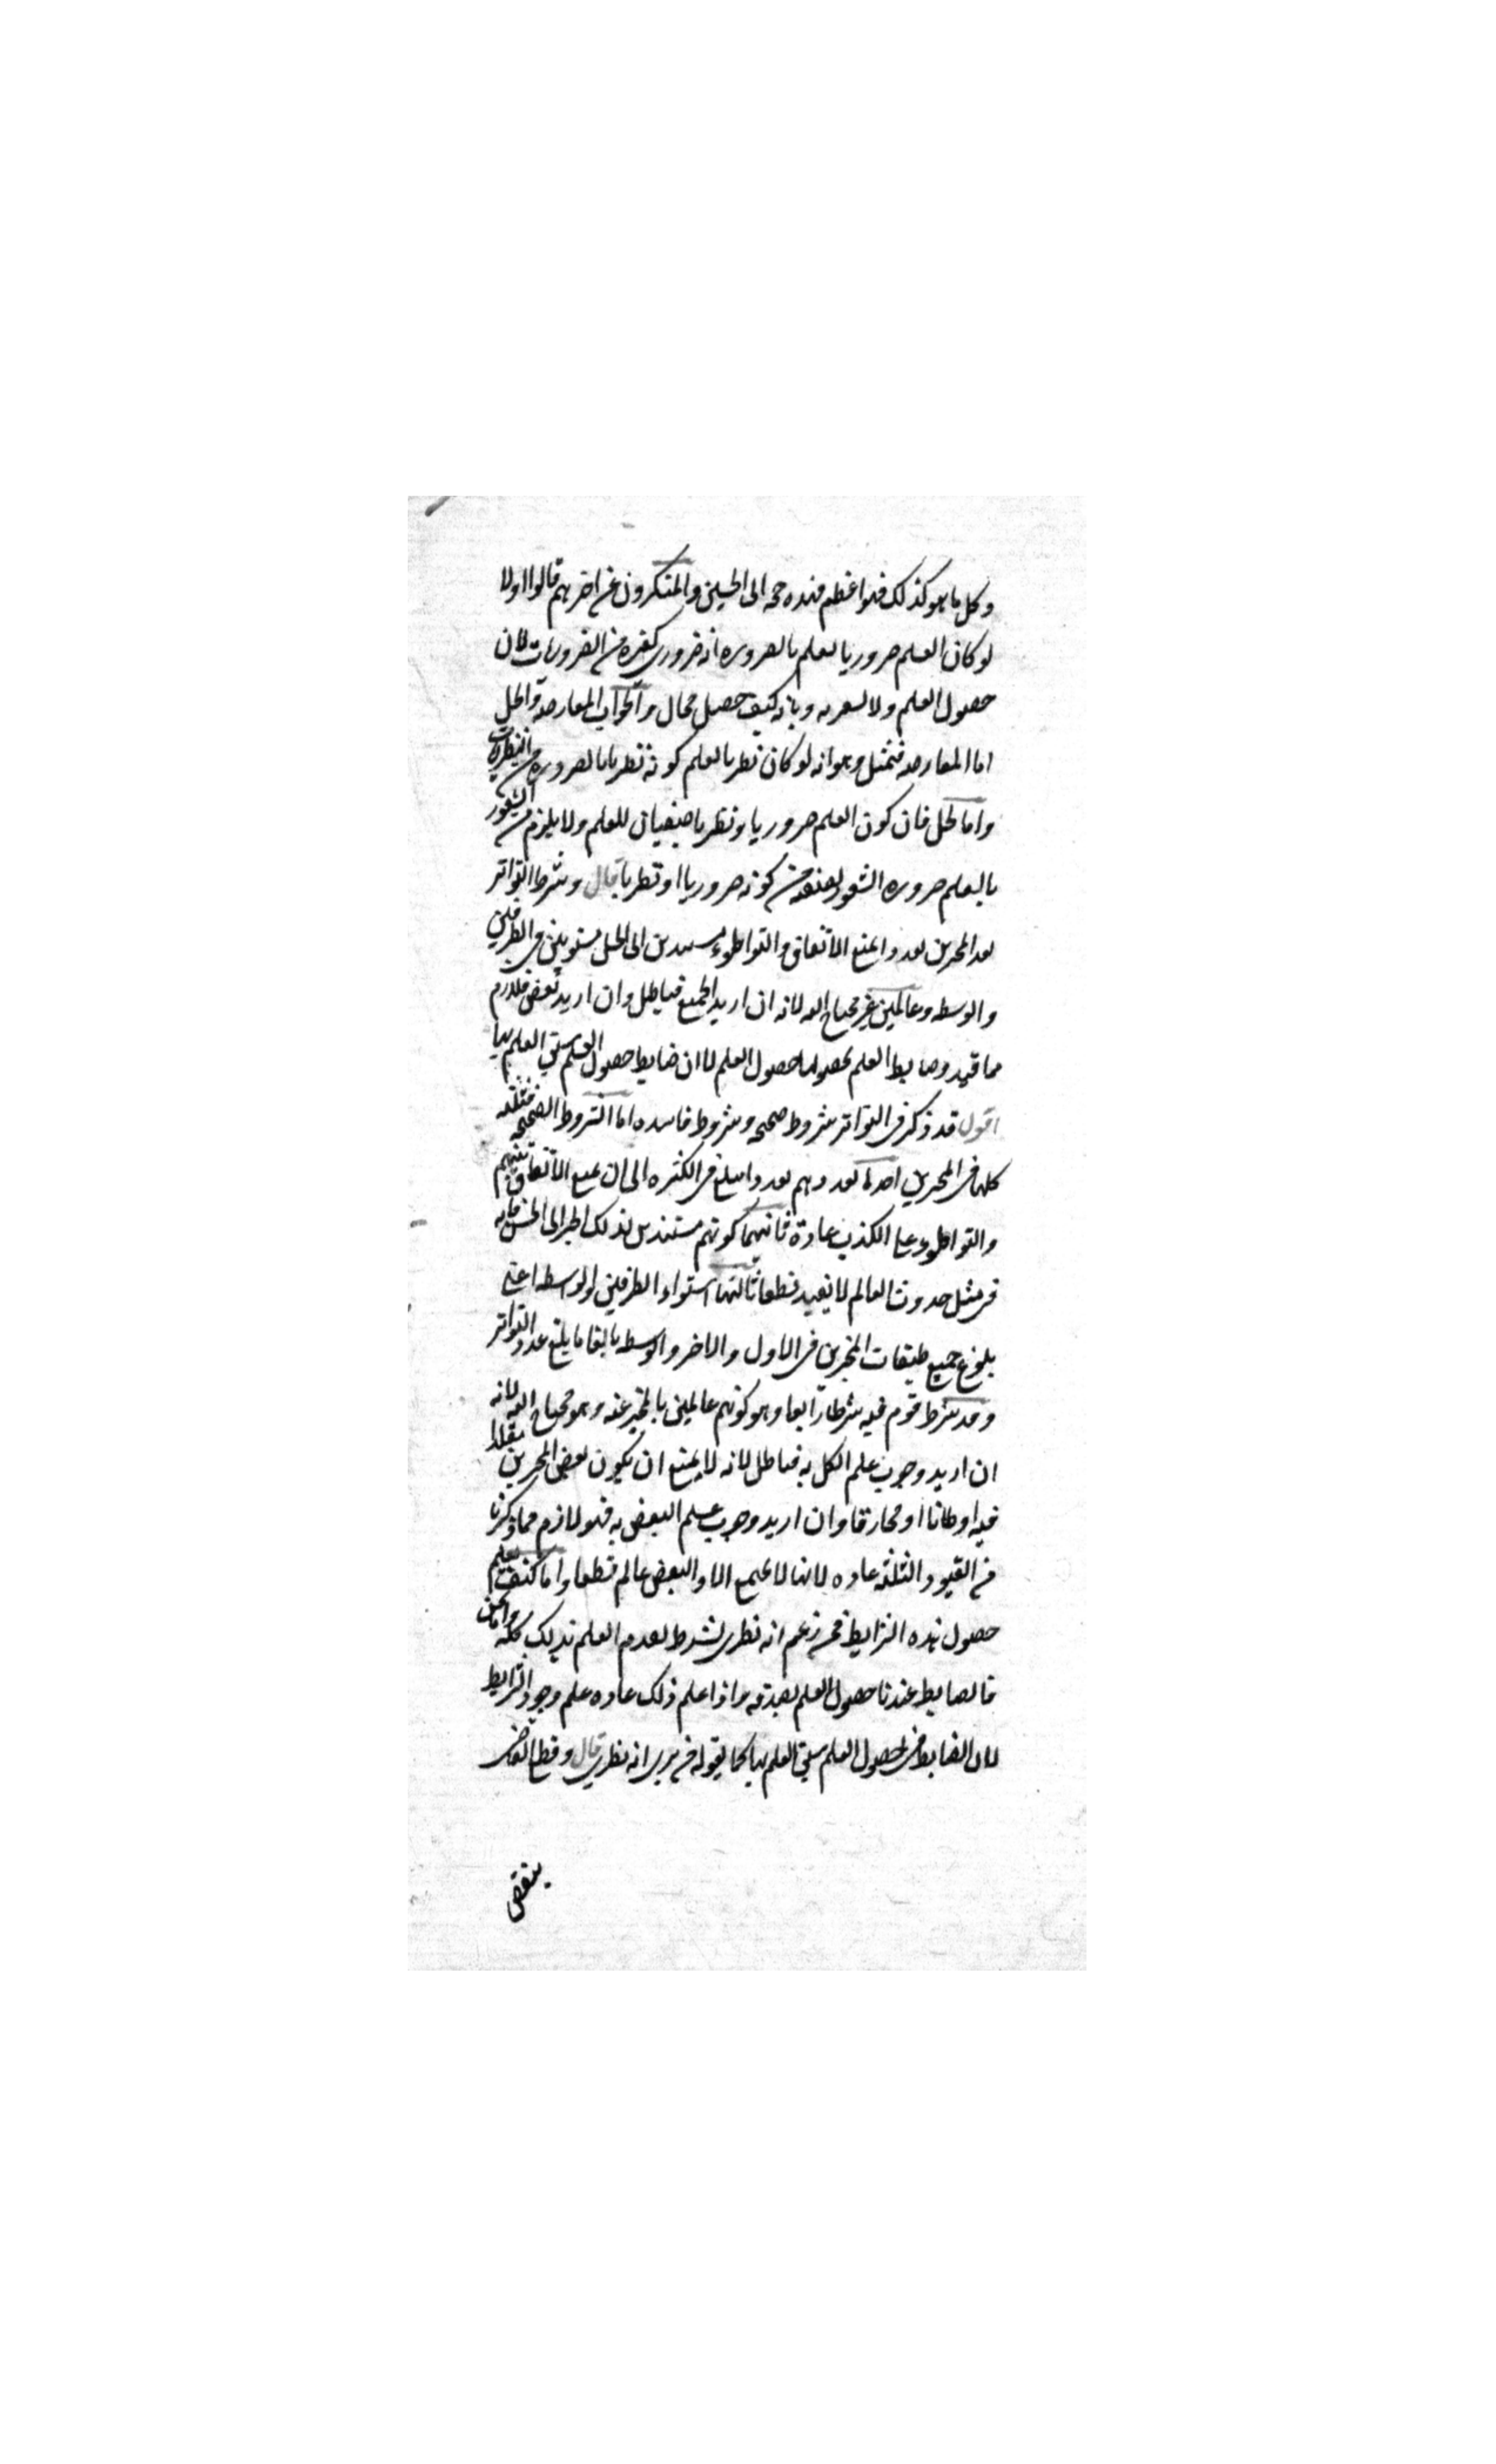 وكل ما هو كذلك فهو اعظم فهذه حجة ابى الحسين والمنكرون عن اخرهم قالوا اولا
لو كان العلم ضروريا لعلم بالضرورة انه ضرورى كغيره من الضروريات لان
حصول العلم ولا يشعر به وبانه كيف حصل محال والجواب المعارضة والحل
اما المعارضة فبمثله وهو انه لو كان نظريا لعلم كونه نظريا بالضرورة من النظريات
واما الحل فان كون العلم ضروريا ونظريا صفتان للعلم ولا يلزم من الشعور
بالعلم ضرورة الشعور بصفته من كونه ضروريا او نظريا قال وشرط التواتر
تعدد المخبرين تعددا يمنع الاتفاق والتواطؤ مستندين الى الحس مستويين فى الطرفين
والوسط وعالمين غير محتاج اليه لانه ان اريد الجميع فباطل وان اريد بعض فلازم
مما قيد وضابط العلم بحصولها حصول العلم لا ان ضابط حصول العلم سبق العلم بها
اقول قد ذكر فى التواتر شروط صحيحة وشروط فاسدة اما الشروط الصحيحة فثلثة
كلها فى المخبرين احدها تعددهم تعددا يبلغ فى الكثرة الى ان يمنع الاتفاق بينهم
والتواطؤ على الكذب عادة ثانيها كونهم مستندين لذلك الخبر الى الحس فانه
فى مثل حدوث العالم لا يفيد قطعا ثالثها استواء الطرفين والوسط اعنى
بلوغ جميع طبقات المخبرين فى الاول والاخر والوسط بالغا ما بلغ عدد التواتر
وقد شرط قوم فيه شرطا رابعا وهو كونهم عالمين بالمخبر عنه وهو محتاج اليه لانه
ان اريد وجوب علم الكل به فباطل لانه لا يمتنع ان يكون بعض المخبرين مقلدا
فيه او ظانا او مجازفا وان اريد وجوب علم البعض به فهو لازم مما ذكرنا
من القيود الثلثة عادة لانها لا تجتمع الا والبعض عالم قطعا واما كيف يعلم
حصول هذه الشرايط فمن زعم انه نظرى يشرط تقدم العلم بذلك كله واما نحن
فالضابط عندنا حصول العلم بصدقه واذا علم ذلك عادة علم وجود الشرايط
لا ان الضابط فى حصول العلم سبق العلم بها كما يقوله من يرى انه نظرى قال وقطع القاضى
بنقص